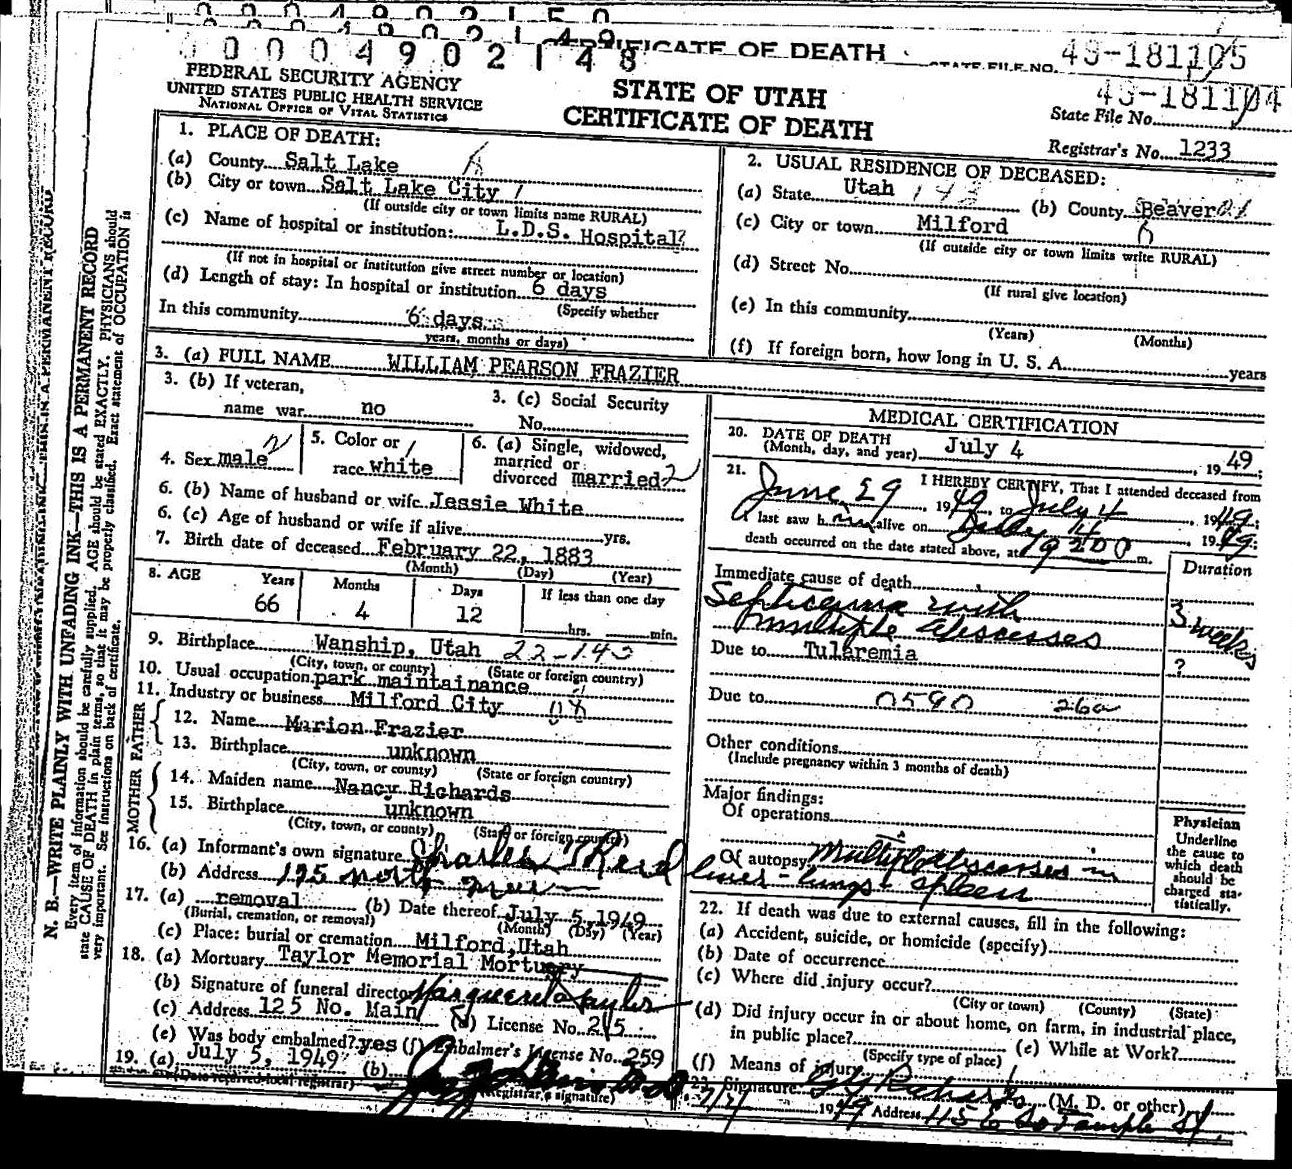 0 0 0 4 9 0 2 1 5 0
0 0 0 4 9 0 2 1 4 9
CERTIFICATE OF DEATH
STATE FILE NO. 49-181105
0 0 0 4 9 0 2 1 4 8
FEDERAL SECURITY AGENCY
UNITED STATES PUBLIC HEALTH SERVICE
NATIONAL OFFICE OF VITAL STATISTICS
STATE OF UTAH
CERTIFICATE OF DEATH
49-181104
State File No.
Registrar's No. 1233
N. B.—WRITE PLAINLY WITH UNFADING INK—THIS IS A PERMANENT RECORD
Every item of information should be carefully supplied. AGE should be stated EXACTLY. PHYSICIANS should
state CAUSE OF DEATH in plain terms, so that it may be properly classified. Exact statement of OCCUPATION is
very important. See instructions on back of certificate.
1. PLACE OF DEATH:
(a) County Salt Lake
(b) City or town Salt Lake City 1
(If outside city or town limits name RURAL)
(c) Name of hospital or institution: L.D.S. Hospital
(If not in hospital or institution give street number or location)
(d) Length of stay: In hospital or institution 6 days
(Specify whether
In this community 6 days
years, months or days)
2. USUAL RESIDENCE OF DECEASED:
(a) State Utah 143 (b) County Beaver 01
(c) City or town Milford
(If outside city or town limits write RURAL)
(d) Street No.
(If rural give location)
(e) In this community
(Years) (Months)
(f) If foreign born, how long in U. S. A. years
3. (a) FULL NAME WILLIAM PEARSON FRAZIER
3. (b) If veteran,
name war no
3. (c) Social Security
No.
4. Sex male
5. Color or
race white
6. (a) Single, widowed,
married or
divorced married 2
6. (b) Name of husband or wife Jessie White
6. (c) Age of husband or wife if alive yrs.
7. Birth date of deceased February 22, 1883
(Month) (Day) (Year)
8. AGE Years Months Days If less than one day
66 4 12 hrs. min.
9. Birthplace Wanship, Utah 22-143
(City, town, or county) (State or foreign country)
10. Usual occupation park maintainance
11. Industry or business Milford City
FATHER
12. Name Marion Frazier
13. Birthplace unknown
(City, town, or county) (State or foreign country)
MOTHER
14. Maiden name Nancy Richards
15. Birthplace unknown
(City, town, or county) (State or foreign country)
16. (a) Informant's own signature Charles Reid
(b) Address 195 North
17. (a) removal (b) Date thereof July 5, 1949
(Burial, cremation, or removal) (Month) (Day) (Year)
(c) Place: burial or cremation Milford, Utah
18. (a) Mortuary Taylor Memorial Mortuary
(b) Signature of funeral director Taylor
(c) Address 125 No. Main (d) License No. 215
(e) Was body embalmed? yes (f) Embalmer's License No. 259
19. (a) July 5, 1949 (b)
(Date received local registrar) (Registrar's signature)
MEDICAL CERTIFICATION
20. DATE OF DEATH
(Month, day, and year) July 4, 1949;
21. I HEREBY CERTIFY, That I attended deceased from
June 29 1949, to July 4 1949;
I last saw him alive on July 4 1949;
death occurred on the date stated above, at m.
Duration
Immediate cause of death
Septicemia with
multiple abscesses
3 weeks
Due to Tularemia
?
Due to 0590 260
Other conditions
(Include pregnancy within 3 months of death)
Major findings:
Of operations
Of autopsy Multiple abscesses in
liver - lungs - spleen
Physician
Underline
the cause to
which death
should be
charged sta-
tistically.
22. If death was due to external causes, fill in the following:
(a) Accident, suicide, or homicide (specify)
(b) Date of occurrence
(c) Where did injury occur?
(City or town) (County) (State)
(d) Did injury occur in or about home, on farm, in industrial place,
in public place? (e) While at Work?
(Specify type of place)
(f) Means of injury
23. Signature G. G. Richards (M. D. or other)
1949 Address 1156 So Temple St.